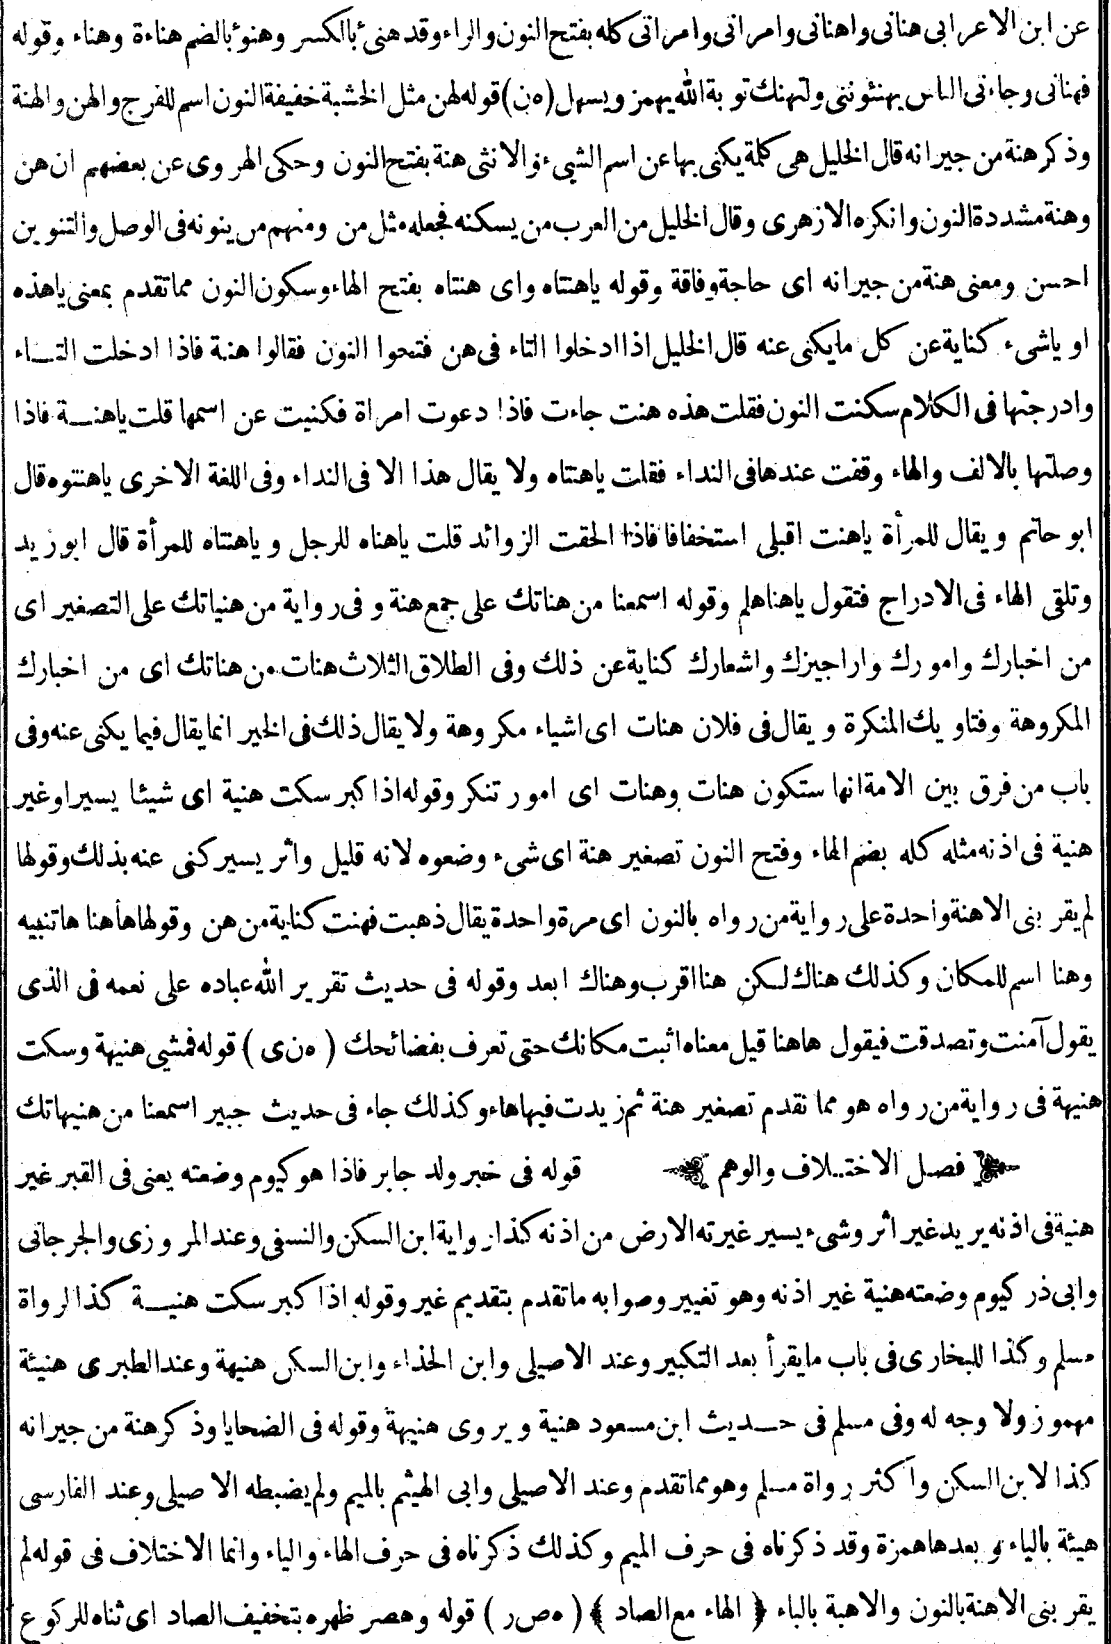 عن ابن الاعرابى هنانى واهنانى وامرانى وامرانى كله بفتح النون والراء وقد هنئ بالكسر وهنوء بالضم هناءة وهناء وقوله
فهنانى وجاءنى الناس يهنئوننى ولتهنك توبة الله يهمز ويسهل (ه ن) قوله لهن مثل الخشبة خفيفة النون اسم للفرج والهن والهنة
وذكر هنة من جيرانه قال الخليل هى كلمة يكنى بها عن اسم الشىء والانثى هنة بفتح النون وحكى الهروى عن بعضهم ان هن
وهنة مشددة النون وانكره الازهرى وقال الخليل من العرب من يسكنه فجعله مثل من ومنهم من ينونه فى الوصل والتنوين
احسن ومعنى هنة من جيرانه اى حاجة وفاقة وقوله ياهنتاه واى هنتاه بفتح الهاء وسكون النون مما تقدم بمعنى ياهذه
او ياشىء كناية عن كل مايكنى عنه قال الخليل اذا ادخلوا التاء فى هن فتحوا النون فقالوا هنة فاذا ادخلت التــاء
وادرجتها فى الكلام سكنت النون فقلت هذه هنت جاءت فاذا دعوت امراة فكنيت عن اسمها قلت ياهنــة فاذا
وصلتها بالالف والهاء وقفت عندها فى النداء فقلت ياهنتاه ولا يقال هذا الا فى النداء وفى اللغة الاخرى ياهنتوه قال
ابو حاتم ويقال للمرأة ياهنت اقبلى استخفافا فاذا الحقت الزوائد قلت ياهناه للرجل وياهنتاه للمرأة قال ابوزيد
وتلقى الهاء فى الادراج فتقول ياهنا هلم وقوله اسمعنا من هناتك على جمع هنة وفى رواية من هنياتك على التصغير اى
من اخبارك وامورك واراجيزك واشعارك كناية عن ذلك وفى الطلاق الثلاث هنات من هناتك اى من اخبارك
المكروهة وفتاويك المنكرة ويقال فى فلان هنات اى اشياء مكروهة ولا يقال ذلك فى الخير انما يقال فيما يكنى عنه وفى
باب من فرق بين الامة انها ستكون هنات وهنات اى امور تنكر وقوله اذا كبر سكت هنية اى شيئا يسيرا وغير
هنية فى اذنه مثله كله بضم الهاء وفتح النون تصغير هنة اى شىء وضعوه لانه قليل واثر يسير كنى عنه بذلك وقولها
لم يقربنى الا هنة واحدة على رواية من رواه بالنون اى مرة واحدة يقال ذهبت فهنت كناية من هن وقولها هاهنا ها تنبيه
وهنا اسم للمكان وكذلك هناك لسكن هنا اقرب وهناك ابعد وقوله فى حديث تقرير الله عباده على نعمه فى الذى
يقول آمنت وتصدقت فيقول هاهنا قيل معناه اثبت مكانك حتى تعرف بفضائحك (ه ن ى) قوله فمشى هنيهة وسكت
هنيهة فى رواية من رواه هو مما تقدم تصغير هنة ثم زيدت فيها هاء وكذلك جاء فى حديث جبير اسمعنا من هنيهاتك
فصل الاختــلاف والوهم قوله فى خبر ولد جابر فاذا هو كيوم وضعته يعنى فى القبر غير
هنية فى اذنه يريد غير اثر وشىء يسير غيرته الارض من اذنه كذا رواية ابن السكن والنسفى وعند المروزى والجرجانى
وابى ذر كيوم وضعته هنية غير اذنه وهو تغيير وصوابه ماتقدم بتقديم غير وقوله اذا كبر سكت هنيــة كذا لرواة
مسلم وكذا للبخارى فى باب مايقرأ بعد التكبير وعند الاصيلى وابن الحذاء وابن السكن هنيهة وعند الطبرى هنيئة
مهموز ولا وجه له وفى مسلم فى حــديث ابن مسعود هنية ويروى هنيهة وقوله فى الضحايا وذكر هنة من جيرانه
كذا لابن السكن واكثر رواة مسلم وهو مما تقدم وعند الاصيلى وابى الهيثم بالميم ولم يضبطه الاصيلى وعند الفارسى
هيئة بالياء وبعدها همزة وقد ذكرناه فى حرف الميم وكذلك ذكرناه فى حرف الهاء والياء وانما الاختلاف فى قوله لم
يقربنى الا هنة بالنون والاهبة بالباء ﴿ الهاء مع الصاد ﴾ (ه ص ر) قوله وهصر ظهره بتخفيف الصاد اى ثناه للركوع